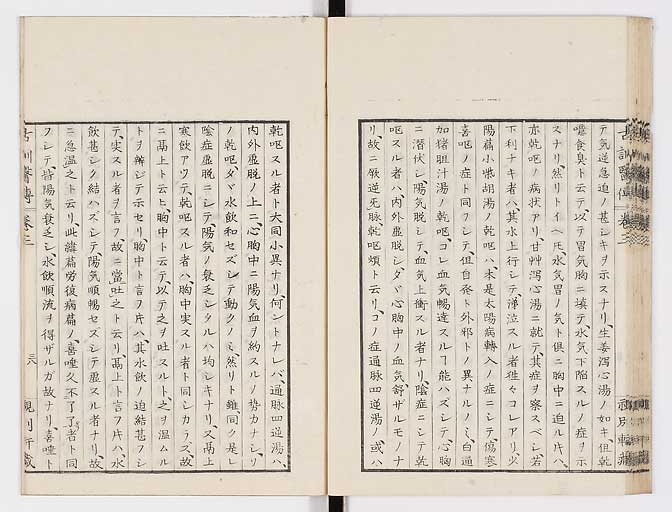 テ気逆急迫ノ甚シキヲ示スナリ、生姜瀉心湯ノ如キ、但乾
噫食臭ト云テ以テ胃気胸ニ壊テ、水気下陥スルノ症ヲ示
スナリ、然リトイヘ𪜈、水気胃ノ気ト俱ニ胸中ニ迫ル片ハ、
亦乾呕ノ病状アリ、甘草瀉心湯ニ就テ、其症ヲ察スベシ、若
下利ナキ者ハ、其水上行シテ、滞泣スル者徃々コレアリ、少
陽篇小柴胡湯ノ乾呕ハ、本是太陽病轉入ノ症ニシテ、傷寒
喜呕ノ症ト同フシテ、但自発ト外邪トノ異ナルノミ、白通
加猪胆汁湯ノ乾呕、コレ血気暢達スルヿ能ハズシテ、心胸
ニ潜伏シ、陽気脱シテ、血気上衝スル者ナリ、陰症ニシテ乾
呕スル者ハ、内外虚脱シ、タヾ心胸中ノ血気、舒ザルモノナ
リ、故ニ厥逆死脉、乾呕煩ト云リ、コノ症通脉四逆湯ノ或ハ
乾呕スル者ト大同小異ナリ、何ントナレバ、通脉四逆湯ハ、
内外虚脱ノ上ニ、心胸中ニ陽気血ヲ納スルノ勢カナシ、リ
ノ乾呕タヾ水飲和セズシテ動クノミ、然リト雖、同ク是レ
陰症虚脱ニシテ、陽気ノ衰乏シタルハ均シキナリ、又鬲上
寒飲アツテ、乾呕スル者ハ、胸中実スル者ト同シカラズ、故
ニ鬲上ト云ヒ、胸中ト云テ、以テ之ヲ吐スルト、之ヲ温ムル
トヲ辨ジテ示セリ、胸中ト言フ片ハ、其水飲ノ迫結甚フシ
テ、実スル者ヲ言フ、故ニ當吐之ト云リ、鬲上ト言フ片ハ、水
飲甚シク結ハズシテ、陽気順暢セズシテ虚スル者ナリ、故
ニ急温之ト云リ、此諱篇労復病篇ノ、喜唾久不了了者ト同
フシテ、皆陽気衰乏シ、水飲順流ヲ得ザルガ故ナリ、喜唾ト
三八